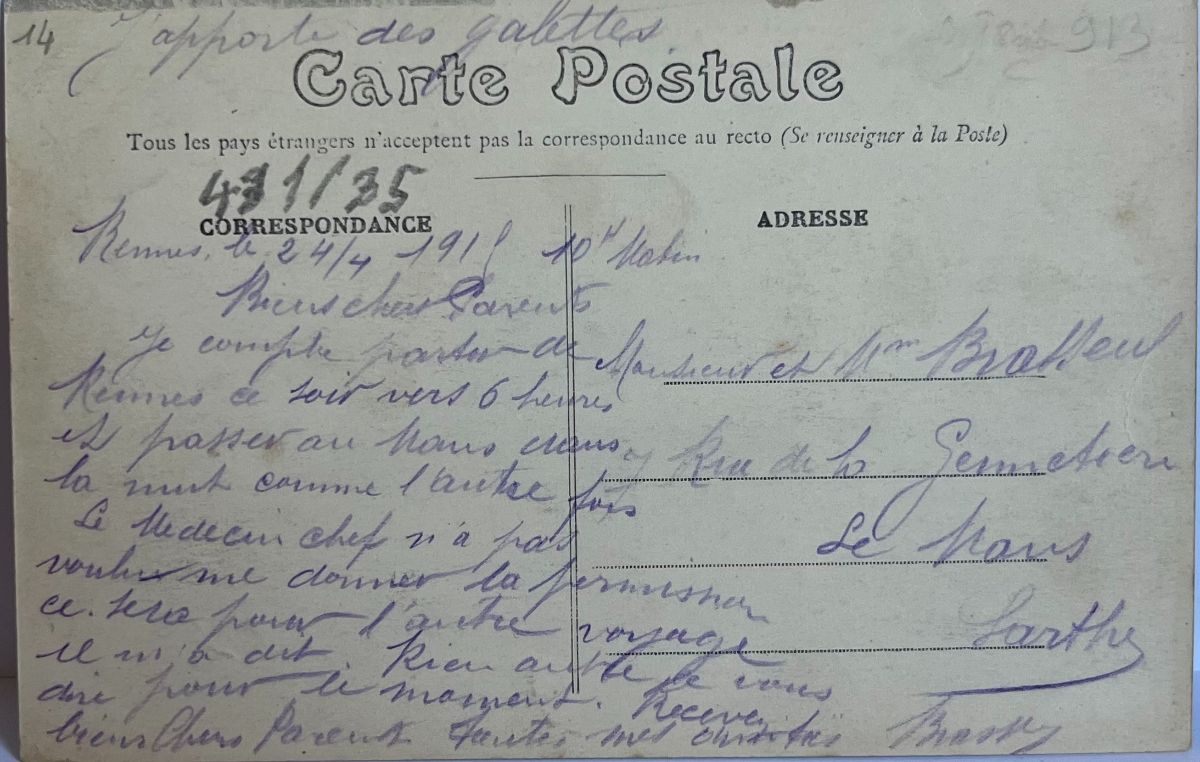 14
J'apporte des galettes
913
Carte Postale
Tous les pays étrangers n'acceptent pas la correspondance au recto (Se renseigner à la Poste)
431/35
CORRESPONDANCE
Rennes, le 24/4 1915 10H Matin
Biens chers Parents
Je compte partir de
Rennes ce soir vers 6 heures
et passer au Mans dans
la nuit comme l'autre fois
Le Medecin chef n'a pas
voulu me donner la permission
ce sera pour l'autre voyage
il m'a dit. Rien autre je vous
dire pour le moment. Recevez
biens Chers Parents Toutes mes
ADRESSE
Monsieur et Mme
Rue de la
Le Mans
Sarthe